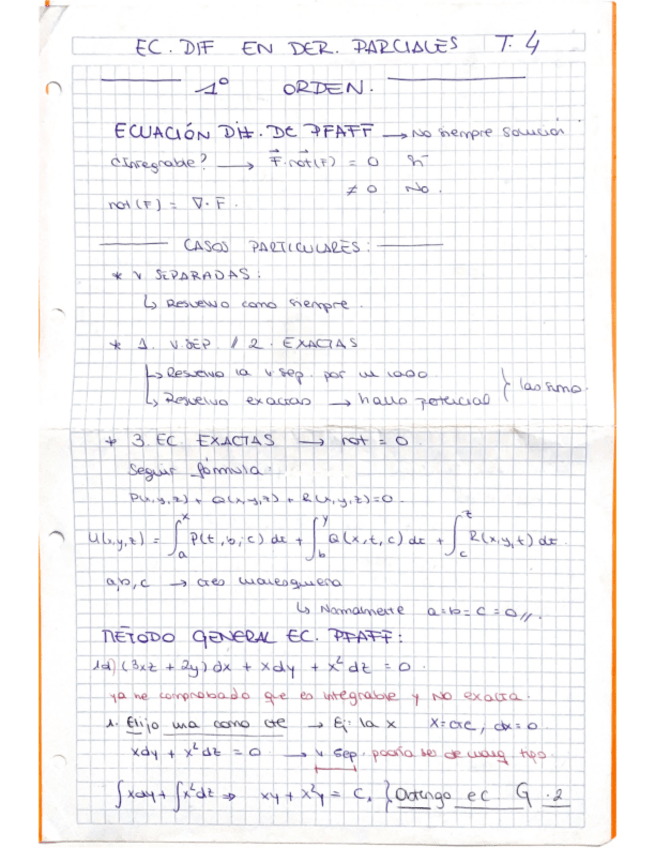 EC. DIF EN DER. PARCIALES T. 4
1º ORDEN.
ECUACIÓN Dif. DE PFAFF → No siempre solución
¿Integrable? → F⃗·rot(F⃗) = 0 Sí
≠ 0 No.
rot(F) = ∇·F.
CASOS PARTICULARES:
* V SEPARADAS:
↳ Resuelvo como siempre.
* 1. V.SEP. / 2. EXACTAS
↳ Resuelvo la v sep. por un lado
↳ Resuelvo exactas → hallo potencial } las sumo.
* 3. EC. EXACTAS → rot = 0
Seguir fórmula:
P(x,y,z) + Q(x,y,z) + R(x,y,z)=0.
U(x,y,z) = ∫ₐˣ P(t,b,c) dt + ∫_b^y Q(x,t,c) dt + ∫_c^z R(x,y,t) dt.
a,b,c → ctes cualesquiera
↳ Normalmente a=b=c=0//.
MÉTODO GENERAL EC. PFAFF:
1d) (3xz + 2y) dx + xdy + x² dz = 0.
ya he comprobado que es integrable y NO exacta.
1. Elijo una como cte → Ej: la x X=cte, dx=0
xdy + x²dz = 0 → v sep. podría ser de cualq tipo
∫xdy + ∫x²dz ⇒ xy + x²y = C₁ } Obtengo ec G .2